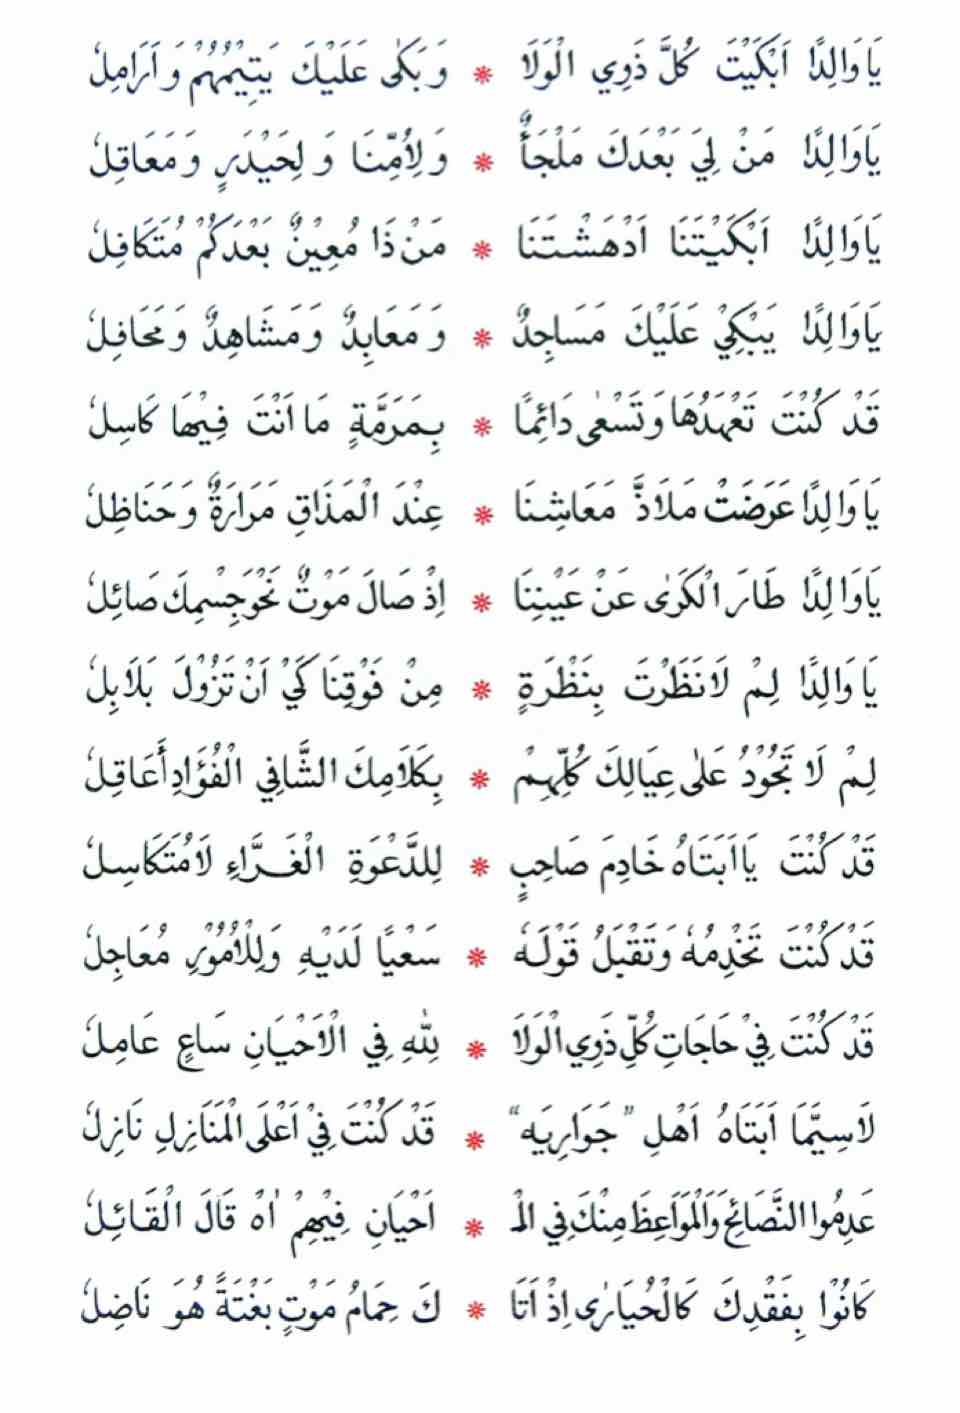 يَا وَالِدًا اَبْكَيْتَ كُلَّ ذَوِي الْوَلَا * وَ بَكٰى عَلَيْكَ يَتِيْمُهُمْ وَ اَرَامِلُ
يَا وَالِدًا مَنْ لِيَ بَعْدَكَ مَلْجَأٌ * وَ لِاُمِّنَا وَ لِحَيْدَرٍ وَ مَعَاقِلُ
يَا وَالِدًا اَبْكَيْتَنَا اَدْهَشْتَنَا * مَنْ ذَا مُعِيْنٌ بَعْدَكُمْ مُتَكَافِلُ
يَا وَالِدًا يَبْكِيْ عَلَيْكَ مَسَاجِدٌ * وَ مَعَابِدٌ وَ مَشَاهِدٌ وَ مَحَافِلُ
قَدْ كُنْتَ تَعْهَدُهَا وَ تَسْعٰى دَائِمًا * بِمَرَمَّةٍ مَا اَنْتَ فِيْهَا كَاسِلُ
يَا وَالِدًا عَرَضَتْ مَلَاذَّ مَعَاشِنَا * عِنْدَ الْمَذَاقِ مَرَارَةٌ وَ حَنَاظِلُ
يَا وَالِدًا طَارَ الْكَرٰى عَنْ عَيْنِنَا * اِذْ صَالَ مَوْتٌ نَحْوَ جِسْمِكَ صَائِلُ
يَا وَالِدًا لِمْ لَا نَظَرْتَ بِنَظْرَةٍ * مِنْ فَوْقِنَا كَيْ اَنْ تَزُوْلَ بَلَابِلُ
لِمْ لَا تَجُوْدُ عَلٰى عِيَالِكَ كُلِّهِمْ * بِكَلَامِكَ الشَّافِي الْفُؤَادِ أَعَاقِلُ
قَدْ كُنْتَ يَا اَبَتَاهُ خَادِمَ صَاحِبٍ * لِلدَّعْوَةِ الْغَرَّاءِ لَا مُتَكَاسِلُ
قَدْ كُنْتَ تَخْدِمُهٗ وَ تَقْبَلُ قَوْلَهٗ * سَعْيًا لَدَيْهِ وَلِلْاُمُوْرِ مُعَاجِلُ
قَدْ كُنْتَ فِيْ حَاجَاتِ كُلِّ ذَوِي الْوَلَا * لِلّٰهِ فِي الْاَحْيَانِ سَاعٍ عَامِلُ
لَاسِيَّمَا اَبَتَاهُ اَهْلِ "جَوَارِيَه" * قَدْ كُنْتَ فِيْ اَعْلَى الْمَنَازِلِ نَازِلُ
عَدِمُوا النَّصَائِحَ وَالْمَوَاعِظَ مِنْكَ فِي الْـ * اَحْيَانِ فِيْهِمْ اٰهْ قَالَ الْقَائِلُ
كَانُوْا بِفَقْدِكَ كَالْحُيَارٰى اِذْ اَتَا * كَ حِمَامُ مَوْتٍ بَغْتَةً هُوَ نَاضِلُ